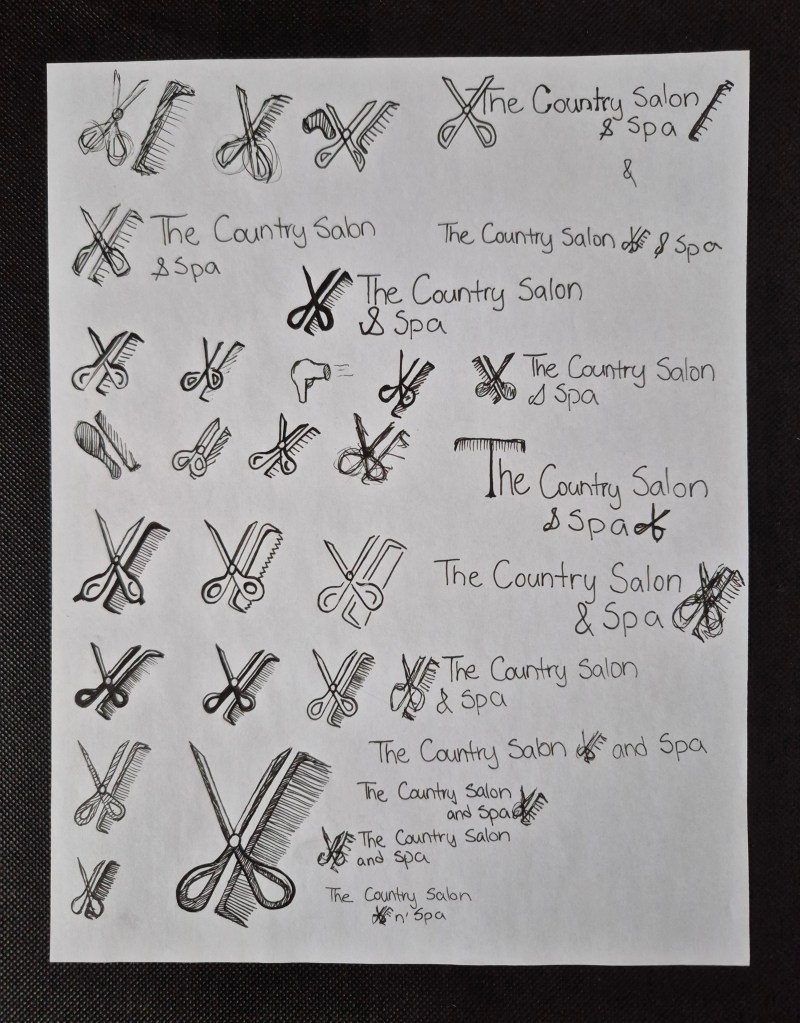 The Country Salon
& Spa
&
The Country Salon
& Spa
The Country Salon & Spa
The Country Salon
& Spa
The Country Salon
& Spa
The Country Salon
& Spa
The Country Salon
& Spa
The Country Salon
& Spa
The Country Salon and Spa
The Country Salon
and Spa
The Country Salon
and Spa
The Country Salon
n' Spa